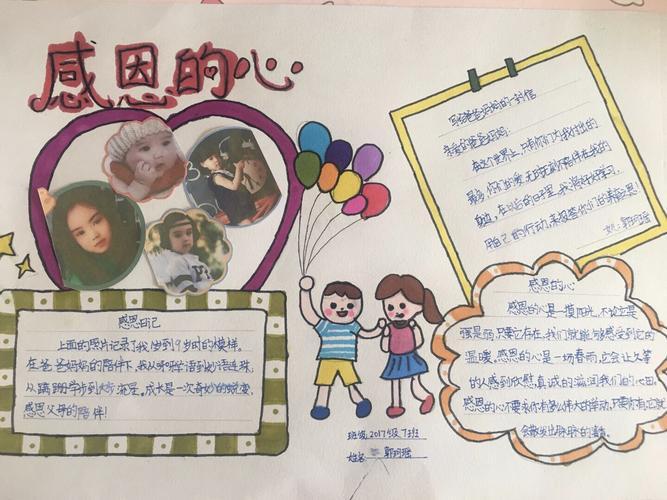 感恩的心
写给爸爸妈妈的一封信
亲爱的爸爸妈妈:
在这个世界上,只有你们为我付出的
最多,你们的爱无时无刻不陪伴在我的
身边,在以后的日子里,我将好好学习,
用自己的行动来报答你们的养育恩!
女儿:郭珂瑶
感恩日记
上面的照片记录了我出生到9岁时的模样。
在爸爸妈妈的陪伴下,我从咿呀学语到妙语连珠,
从蹒跚学步到大步流星,成长是一次奇妙的蜕变,
感恩父母的陪伴!
感恩的心
感恩的心是一摸阳光,不论它是
强是弱,只要它存在,我们就能够感受到它的
温暖,感恩的心是一场春雨,它会让久等
的人感到欣慰,真诚的滋润我们的心田,
感恩的心不要求你有多么伟大的举动,只要你有它就
会散发出脉脉的清香。
班级:2017级7班
姓名: 郭珂瑶